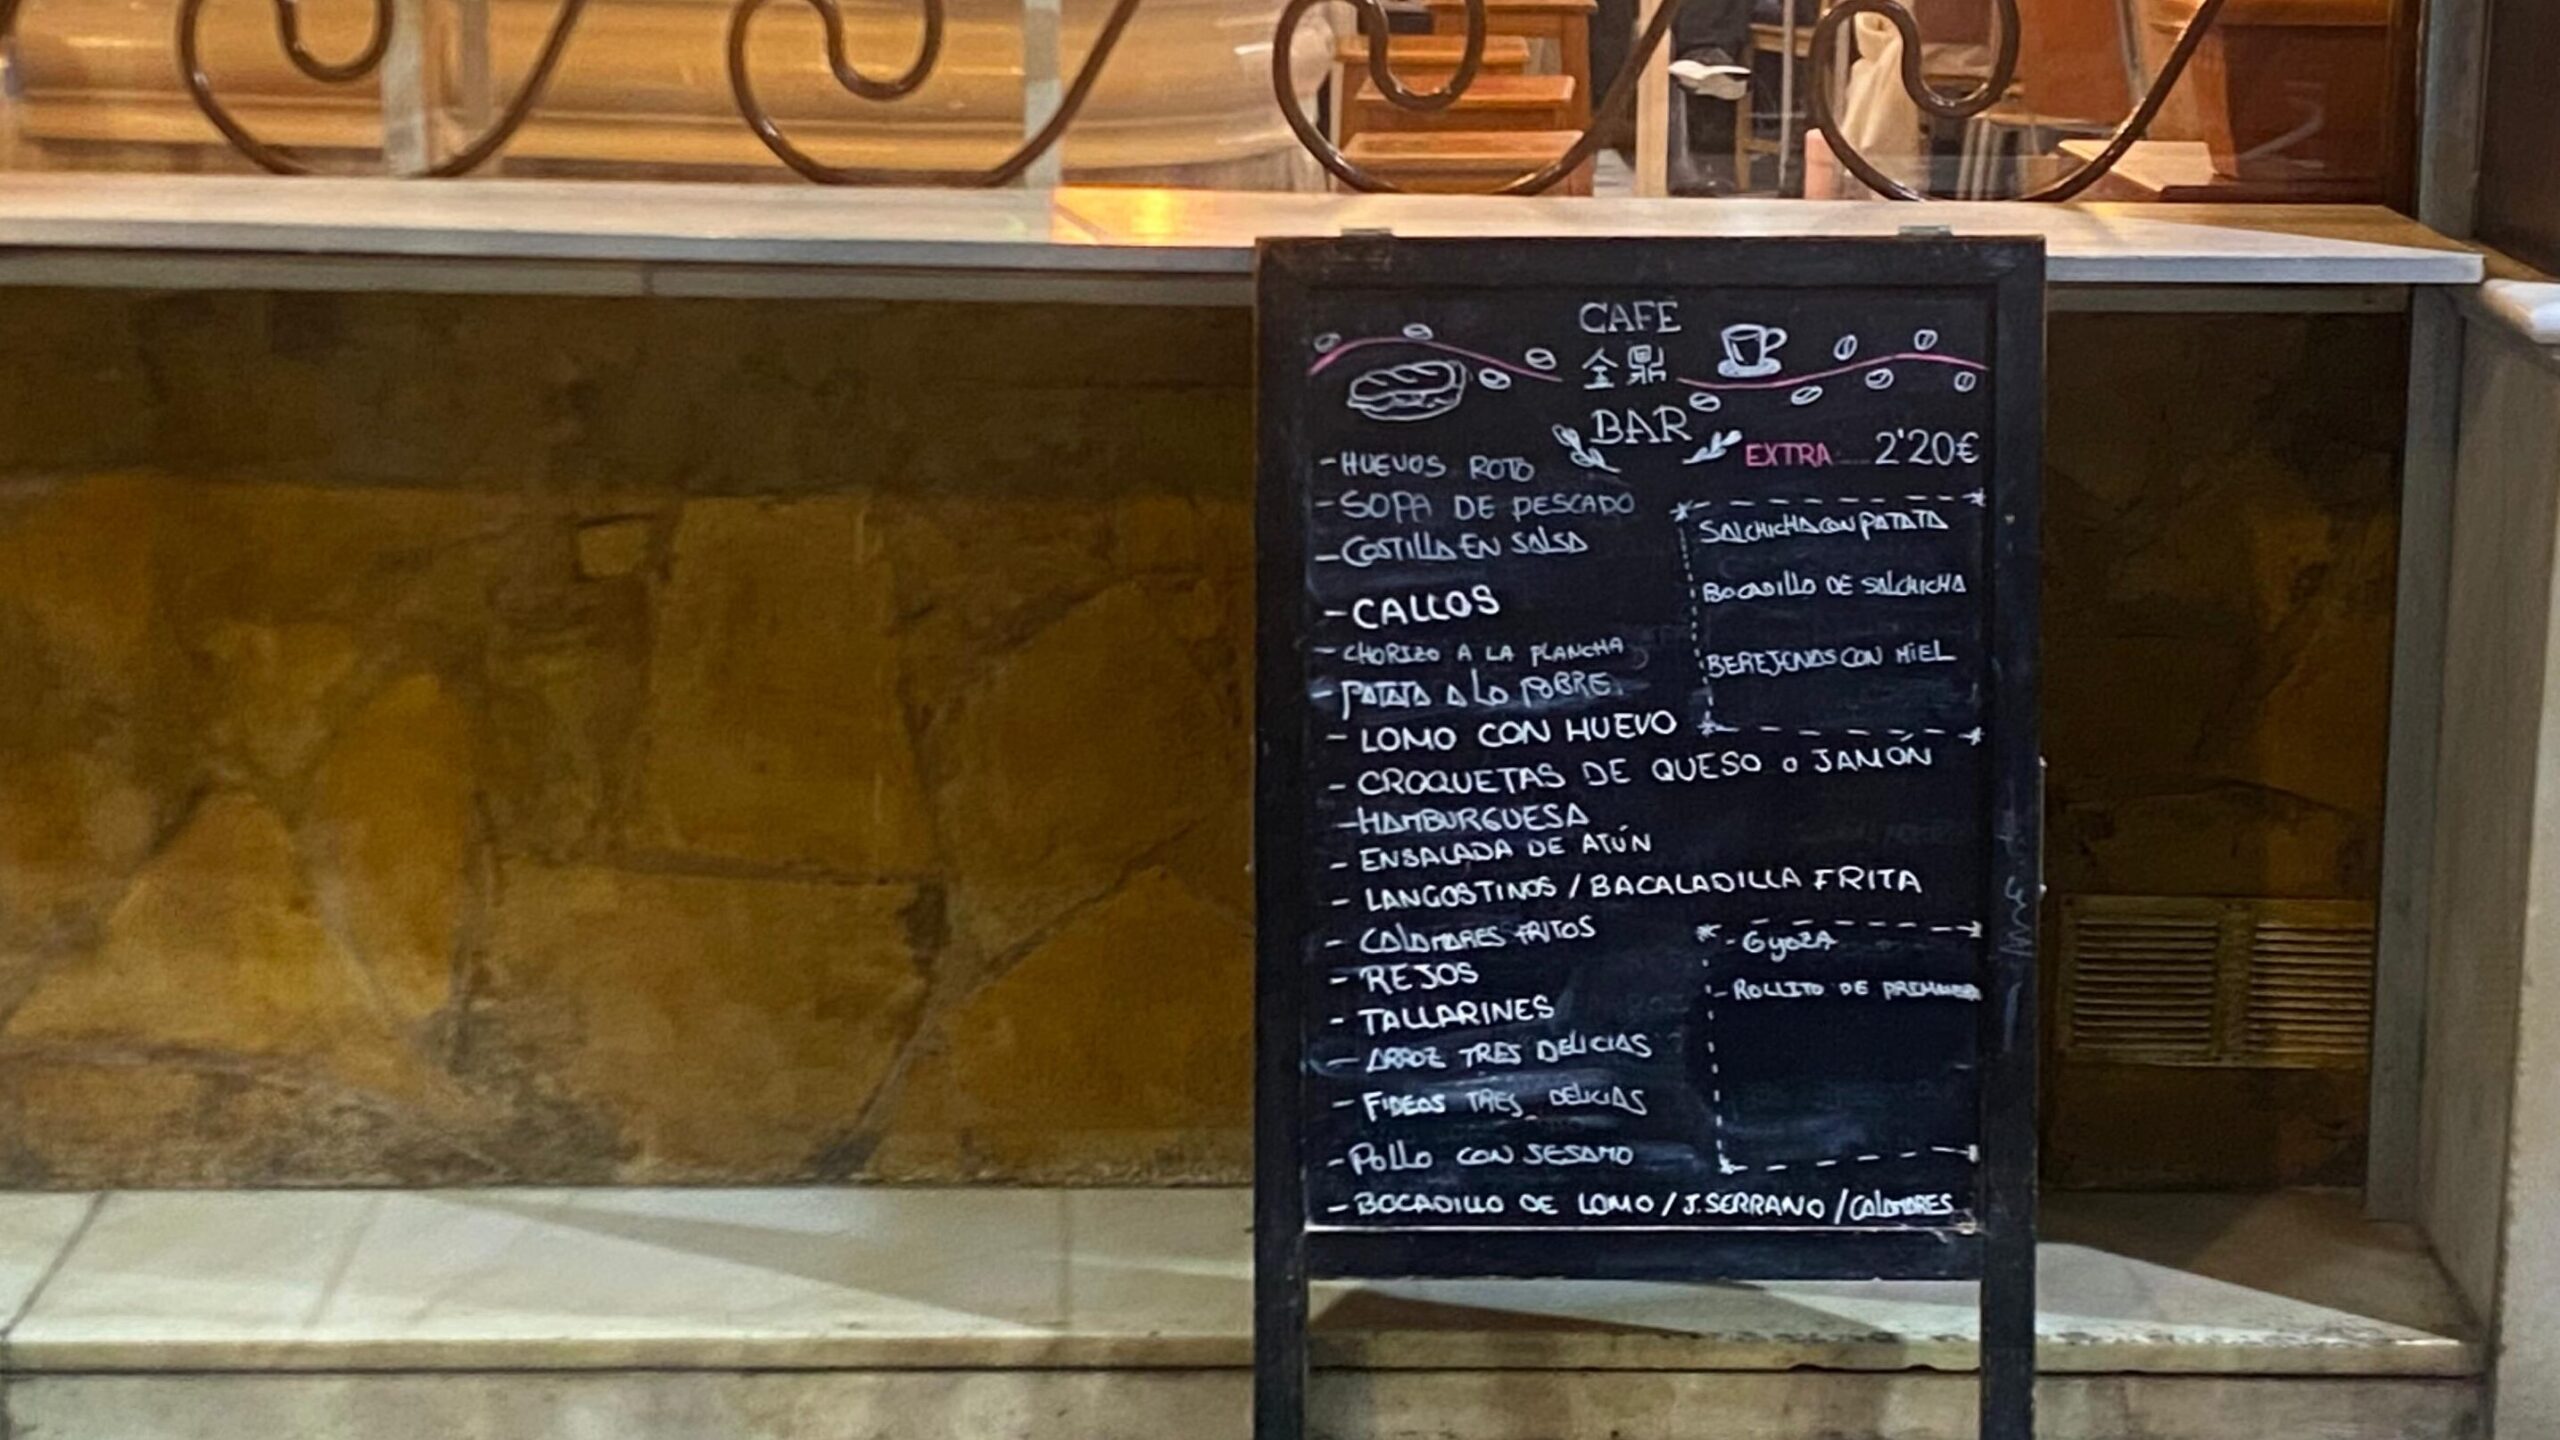 CAFE
金鼎
BAR
EXTRA 2'20€
- HUEVOS ROTO
- SOPA DE PESCADO
- COSTILLA EN SALSA
- CALLOS
- CHORIZO A LA PLANCHA
- PATATA A LO POBRE
- LOMO CON HUEVO
- CROQUETAS DE QUESO o JAMÓN
- HAMBURGUESA
- ENSALADA DE ATÚN
- LANGOSTINOS / BACALADILLA FRITA
- CALAMARES FRITOS
- REJOS
- TALLARINES
- ARROZ TRES DELICIAS
- FIDEOS TRES DELICIAS
- POLLO CON SESAMO
- BOCADILLO DE LOMO / J. SERRANO / CALAMARES
SALCHICHA CON PATATA
BOCADILLO DE SALCHICHA
BEREJENAS CON MIEL
- GYOZA
- ROLLITO DE PRIMAVERA